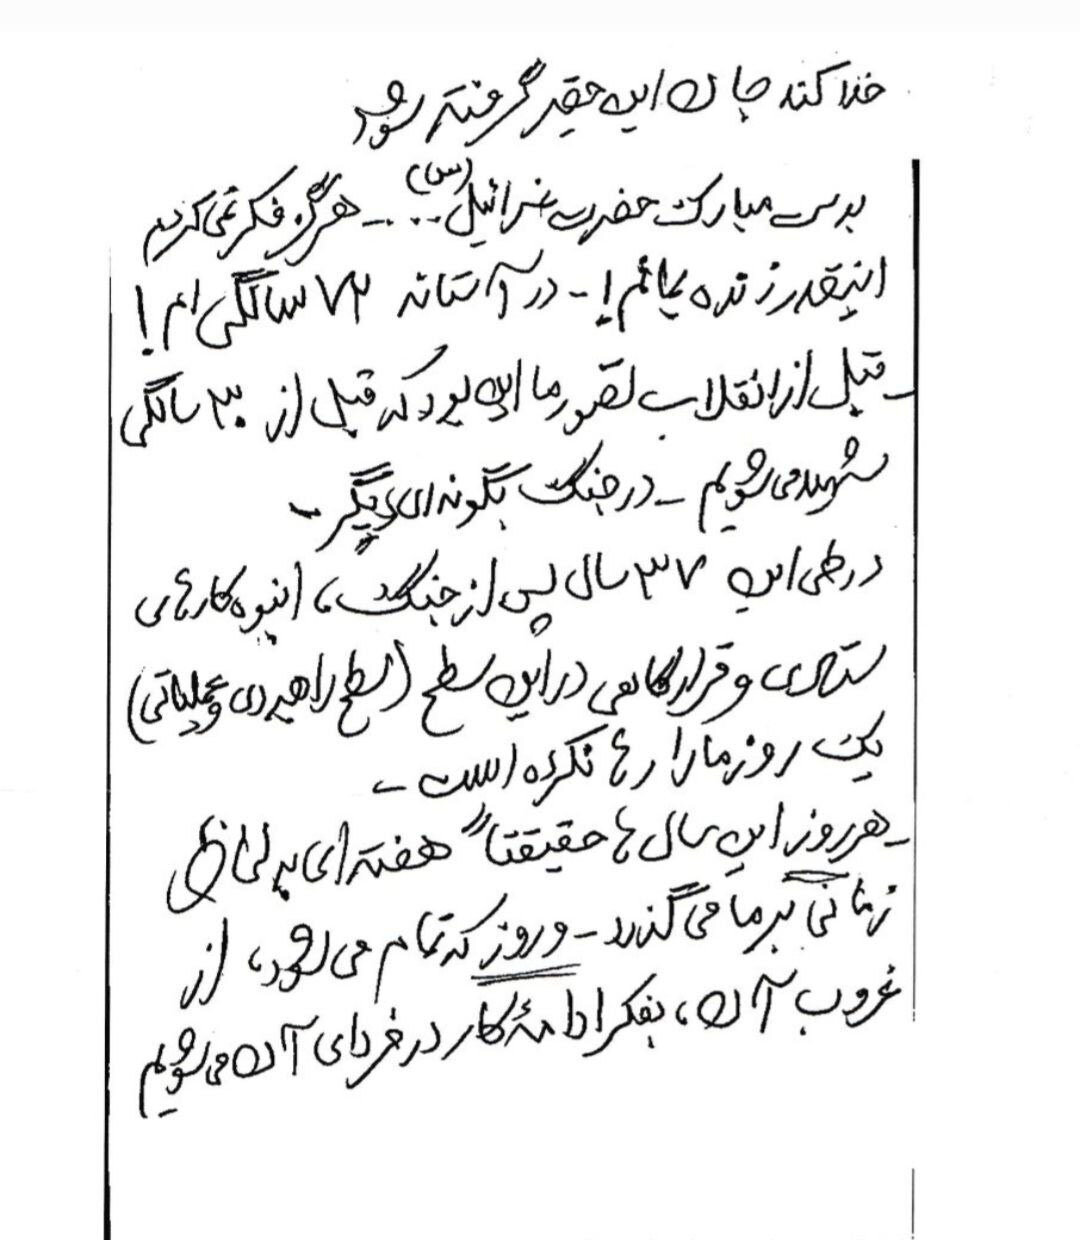 خدا کند جان این حقیر گرفته شود
بدست مبارک حضرت عزرائیل (س) ... - هرگز فکر نمی کردیم
اینقدر زنده بمانم! - در آستانه ۷۲ سالگی ام!
- قبل از انقلاب تصور ما این بود که قبل از ۳۰ سالگی
شهید می شویم - در جنگ بگونه ای دیگر -
در طی این ۳۷ سال پس از جنگ، انبوه کارهای
ستادی و قرارگاهی در این سطح (سطح راهبردی و عملیاتی)
یک روز ما را رها نکرده است -
- هر روز این سال ها حقیقتاً هفته ای به لحاظ
زمانی بر ما می گذرد - و روز که تمام می شود، از
غروب آن، بفکر ادامهٔ کار در فردای آن می شویم